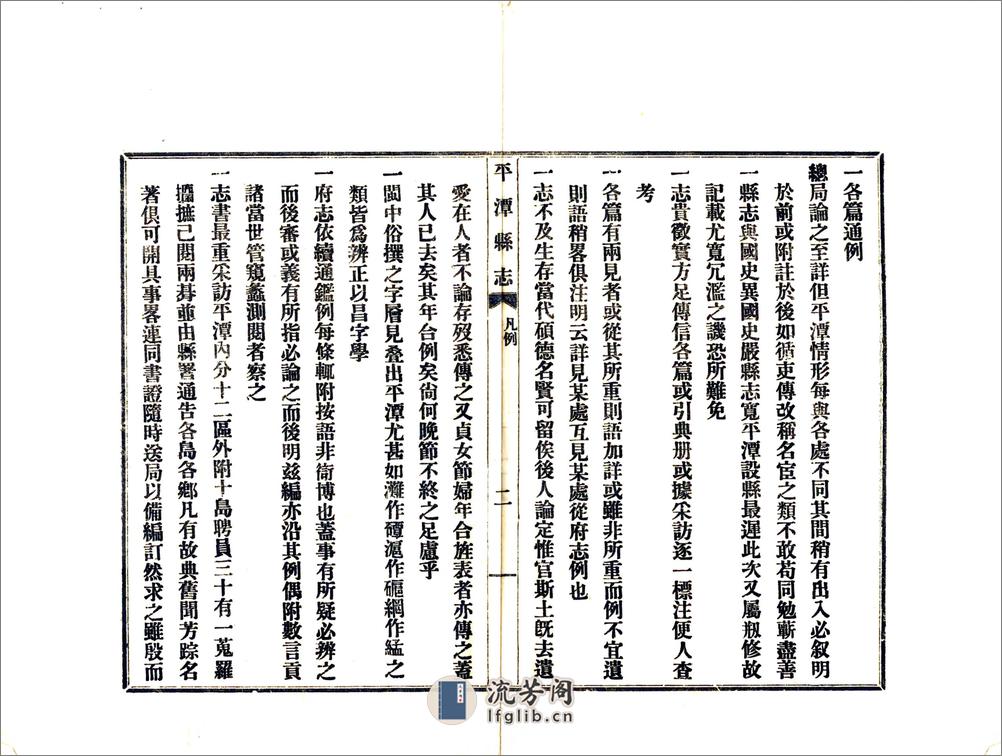 一各篇通例
總局論之至詳但平潭情形每與各處不同其間稍有出入必叙明
於前或附註於後如循吏傳改稱名宦之類不敢苟同勉蘄盡善
一縣志與國史異國史嚴縣志寬平潭設縣最遲此次又屬剏修故
記載尤寬冗濫之譏恐所難免
一志貴徵實方足傳信各篇或引典册或據采訪逐一標注便人查
考
一各篇有兩見者或從其所重則語加詳或雖非所重而例不宜遺
則語稍畧俱注明云詳見某處互見某處從府志例也
一志不及生存當代碩德名賢可留俟後人論定惟官斯土旣去遺
平潭縣志
凡例
二
愛在人者不論存歿悉傳之又貞女節婦年合旌表者亦傳之蓋
其人已去矣其年台例矣尙何晚節不終之足慮乎
一閩中俗撰之字層見叠出平潭尤甚如灘作磹滬作䃣綱作緼之
類皆爲辨正以昌字學
一府志依續通鑑例每條輒附按語非衒博也蓋事有所疑必辨之
而後審或義有所指必論之而後明兹編亦沿其例偶附數言貢
諸當世管窺蠡測閱者察之
一志書最重采訪平潭內分十二區外附十島聘員三十有一蒐羅
攟摭已閱兩朞並由縣署通告各島各鄉凡有故典舊聞芳踪名
著俱可開具事畧連同書證隨時送局以備編訂然求之雖殷而
流芳阁
lfglib.cn